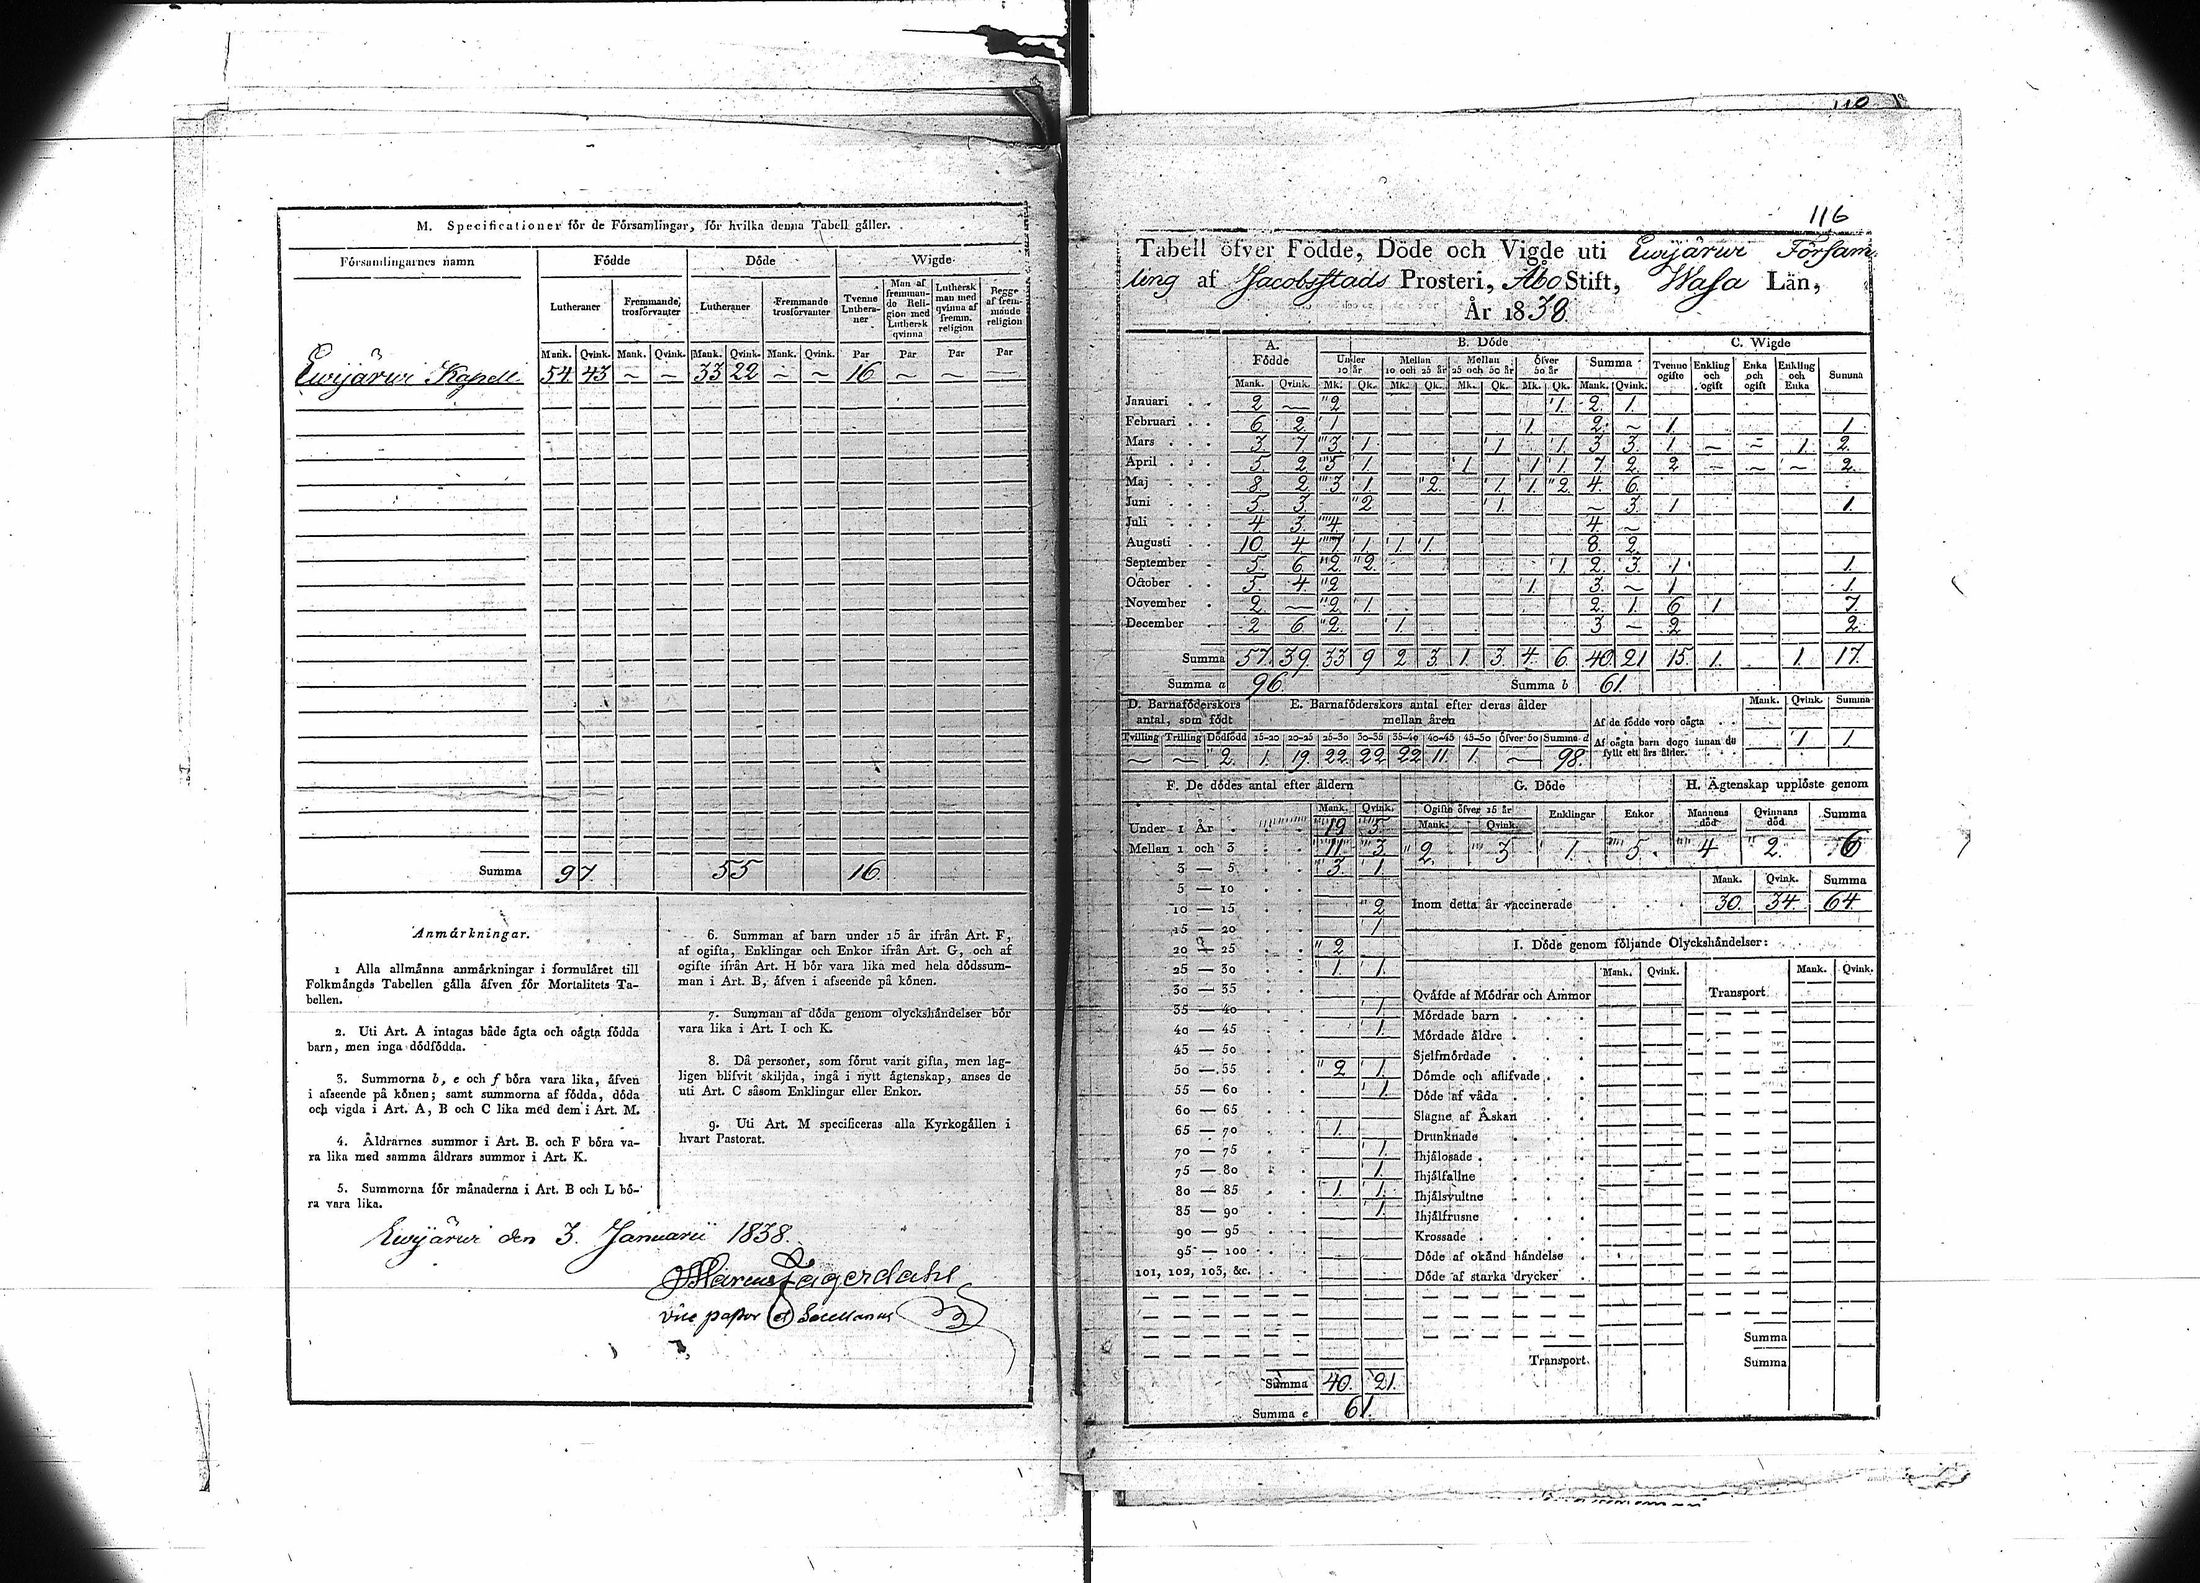 M. Specificationer för de Församlingar, för hvilka denna Tabell gäller.
Församlingarnes namn Födde Döde Wigde
Lutheraner Fremmande trosförvanter Lutheraner Fremmande trosförvanter Tvenne Lutheraner Man af fremmande Religion med Luthersk qvinna Luthersk man med qvinna af fremm. religion Begge af fremmande religion
Mank. Qvink. Mank. Qvink. Mank. Qvink. Mank. Qvink. Par Par Par Par
Ewijärwi Kapell 54 43 ~ ~ 33 22 ~ ~ 16 ~ ~ ~
Summa 97 55 16
Anmärkningar.
1 Alla allmänna anmärkningar i formuläret till
Folkmängds Tabellen gälla äfven för Mortalitets Ta-
bellen.
2. Uti Art. A intagas både ägta och oägta födda
barn, men inga dödfödda.
3. Summorna b, e och f böra vara lika, äfven
i afseende på könen; samt summorna af födda, döda
och vigda i Art. A, B och C lika med dem i Art. M.
4. Åldrarnes summor i Art. B. och F böra va-
ra lika med samma åldrars summor i Art. K.
5. Summorna för månaderna i Art. B och L bö-
ra vara lika.
6. Summan af barn under 15 år ifrån Art. F,
af ogifta, Enklingar och Enkor ifrån Art. G, och af
ogifte ifrån Art. H bör vara lika med hela dödssum-
man i Art. B, äfven i afseende på könen.
7. Summan af döda genom olyckshändelser bör
vara lika i Art. I och K.
8. Då personer, som förut varit gifta, men lag-
ligen blifvit skiljda, ingå i nytt ägtenskap, anses de
uti Art. C såsom Enklingar eller Enkor.
9. Uti Art. M specificeras alla Kyrkogällen i
hvart Pastorat.
Ewijärwi den 3. Januarii 1838.
Fagerdahl
vice pastor et Sacellanus
116
Tabell öfver Födde, Döde och Vigde uti Ewijärwi Församling
af Jacobsstads Prosteri, Åbo Stift, Wasa Län,
År 1838.
A. Födde B. Döde C. Wigde
Under 10 år Mellan 10 och 25 år Mellan 25 och 50 år Öfver 50 år Summa Tvenne ogifte Enkling och ogift Enka och ogift Enkling och Enka Summa
Mank. Qvink. Mk. Qk. Mk. Qk. Mk. Qk. Mk. Qk. Mank. Qvink.
Januari 2 ~ 2 1. 2. 1.
Februari 6 2 1 1. 2. ~ 1. 1.
Mars 3 7 3 1 1 1. 3 3 1 ~ ~ 1. 2.
April 5. 2 5 1. 1 1 1. 7. 2. 2 ~ ~ ~ 2.
Maj 8 2 3 1. 2. 1. 1. 2 4. 6.
Juni 5. 3. 2 1. ~ 3. 1 1.
Juli 4 3. 4. 4 ~
Augusti 10 4. 7 1. 1. 1. 8. 2.
September 5. 6. 2. 2. 1. 2. 3. 1. 1.
October 5. 4. 2 1. 3. ~ 1 1.
November 2. ~ 2. 1. 2. 1. 6 1 7.
December 2 6. 2. 1. 3 ~ 2 2.
Summa 57. 39. 33 9 2 3. 1. 3 4. 6. 40. 21 15. 1. 1. 17.
Summa a 96. Summa b 61.
D. Barnaföderskors antal, som födt
E. Barnaföderskors antal efter deras ålder mellan åren
Tvilling Trilling Dödfödd 15-20 20-25 25-30 30-35 35-40 40-45 45-50 öfver 50 Summa d
~ ~ 2. 1. 19. 22. 22 22 11 1. ~ 98.
Mank. Qvink. Summa
Af de födde voro oägta
Af oägta barn dogo innan de fyllt ett års ålder. 1 1.
F. De dödes antal efter åldern
Mank. Qvink.
Under 1 År 19 5.
Mellan 1 och 3 11. 3
3 — 5 3. 1.
5 — 10
10 — 15 2
15 — 20 1
20 — 25 2
25 — 30 1. 1.
30 — 35
35 — 40 1
40 — 45 1.
45 — 50
50 — 55 2 1.
55 — 60 1.
60 — 65
65 — 70 1.
70 — 75 1.
75 — 80 1.
80 — 85 1. 1.
85 — 90 1.
90 — 95
95 — 100
101, 102, 103, &c.
Summa 40. 21.
Summa e 61.
G. Döde
Ogifte öfver 15 år Enklingar Enkor
Mank. Qvink.
2. 3 1. 5.
H. Ägtenskap upplöste genom
Mannens död Qvinnans död Summa
4 2. 6
Mank. Qvink. Summa
Inom detta år vaccinerade 30. 34. 64
I. Döde genom följande Olyckshändelser:
Mank. Qvink. Transport Mank. Qvink.
Qväfde af Mödrar och Ammor
Mördade barn
Mördade äldre
Sjelfmördade
Dömde och aflifvade
Döde af våda
Slagne af Åskan
Drunknade
Ihjälosade
Ihjälfallne
Ihjälsvultne
Ihjälfrusne
Krossade
Döde af okänd händelse
Döde af starka drycker
Summa
Transport. Summa